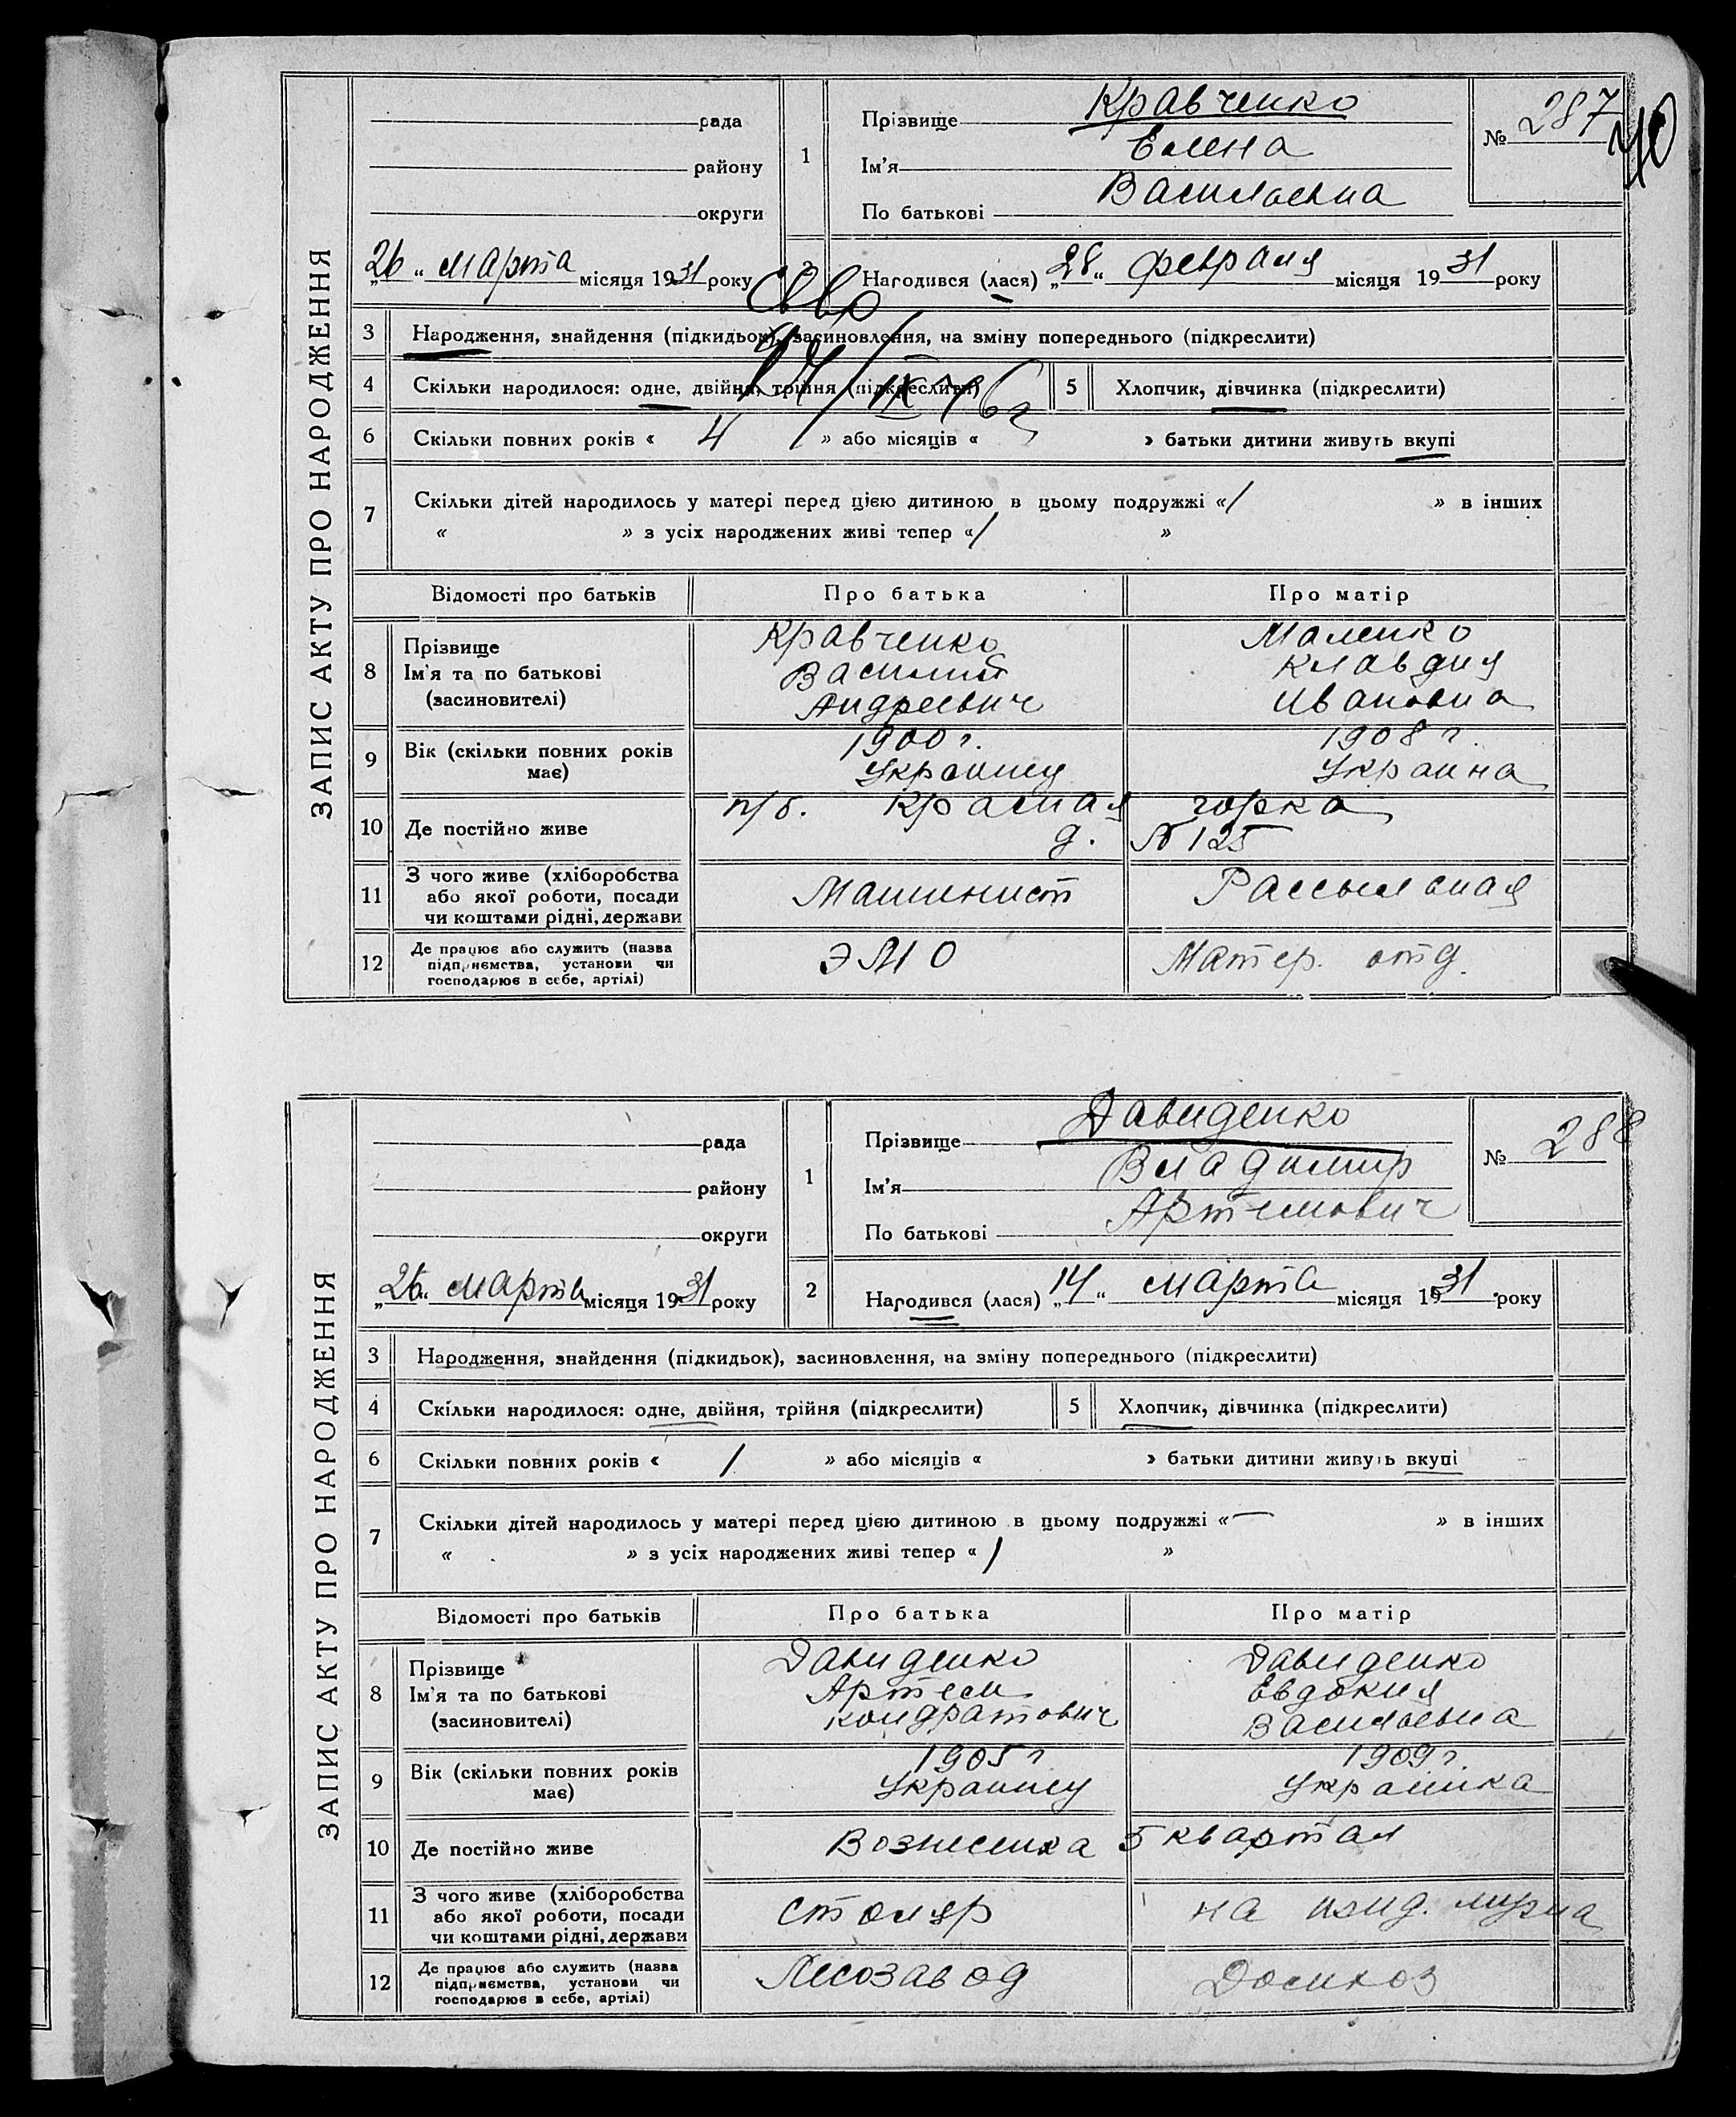 ЗАПИС АКТУ ПРО НАРОДЖЕННЯ
рада
району
округи
„26“ марта місяця 1931 року
1
Прізвище Кравченко
Ім'я Елена
По батькові Васильевна
№ 287
40
2
Народився (лася) „28“ февраля місяця 1931 року
Св во
17/IX 46 г
3 Народження, знайдення (підкидьок), засиновлення, на зміну попереднього (підкреслити)
4 Скільки народилося: одне, двійня, трійня (підкреслити) 5 Хлопчик, дівчинка (підкреслити)
6 Скільки повних років « 4 » або місяців « » батьки дитини живуть вкупі
7 Скільки дітей народилось у матері перед цією дитиною в цьому подружжі «1 » в інших
« » з усіх народжених живі тепер «1 »
Відомості про батьків Про батька Про матір
8
Прізвище Кравченко Маленко
Ім'я та по батькові Василий Клавдия
(засиновителі) Андреевич Ивановна
9 Вік (скільки повних років 1900 г. 1908 г.
має) Украинец Украинка
10 Де постійно живе п/б. Красная горка
д. № 125
11 З чого живе (хліборобства
або якої роботи, посади Машинист Рассыльная
чи коштами рідні, держави
12 Де працює або служить (назва
підприємства, установи чи ЭМО Матер. отд.
господарює в себе, артілі)
ЗАПИС АКТУ ПРО НАРОДЖЕННЯ
рада
району
округи
„26“ марта місяця 1931 року
1
Прізвище Давиденко
Ім'я Владимир
По батькові Артемович
№ 288
2
Народився (лася) „14“ марта місяця 1931 року
3 Народження, знайдення (підкидьок), засиновлення, на зміну попереднього (підкреслити)
4 Скільки народилося: одне, двійня, трійня (підкреслити) 5 Хлопчик, дівчинка (підкреслити)
6 Скільки повних років « 1 » або місяців « » батьки дитини живуть вкупі
7 Скільки дітей народилось у матері перед цією дитиною в цьому подружжі «— » в інших
« » з усіх народжених живі тепер «1 »
Відомості про батьків Про батька Про матір
8
Прізвище Давиденко Давиденко
Ім'я та по батькові Артем Евдокия
(засиновителі) Кондратович Васильевна
9 Вік (скільки повних років 1905 г 1909 г.
має) Украинец Украинка
10 Де постійно живе Вознесенка 5 квартал
11 З чого живе (хліборобства
або якої роботи, посади столяр на ижд. мужа
чи коштами рідні, держави
12 Де працює або служить (назва
підприємства, установи чи Лесозавод Домхоз
господарює в себе, артілі)